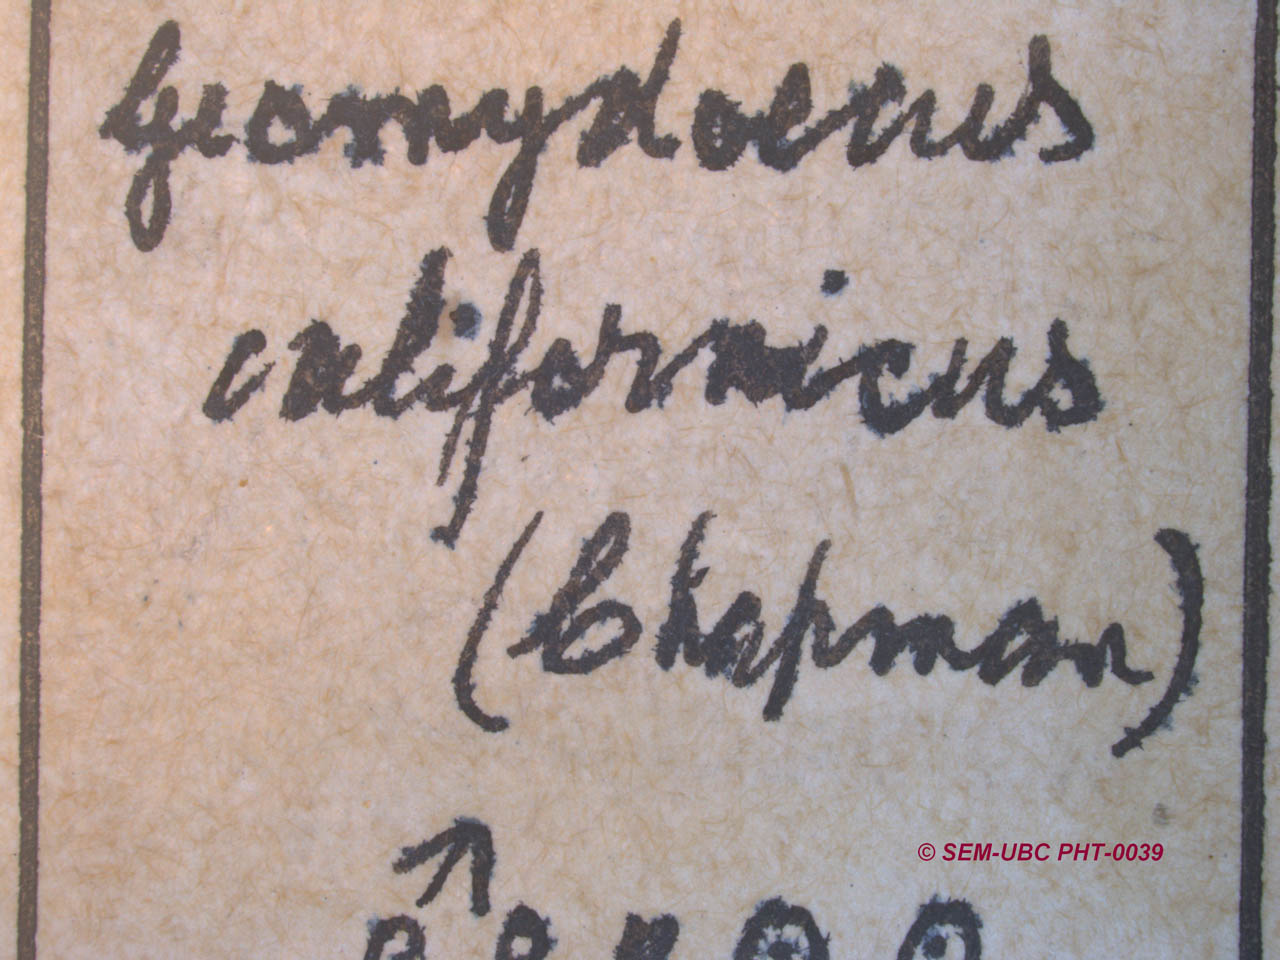 Geomydoecus
californicus
(Chapman)
© SEM-UBC PHT-0039